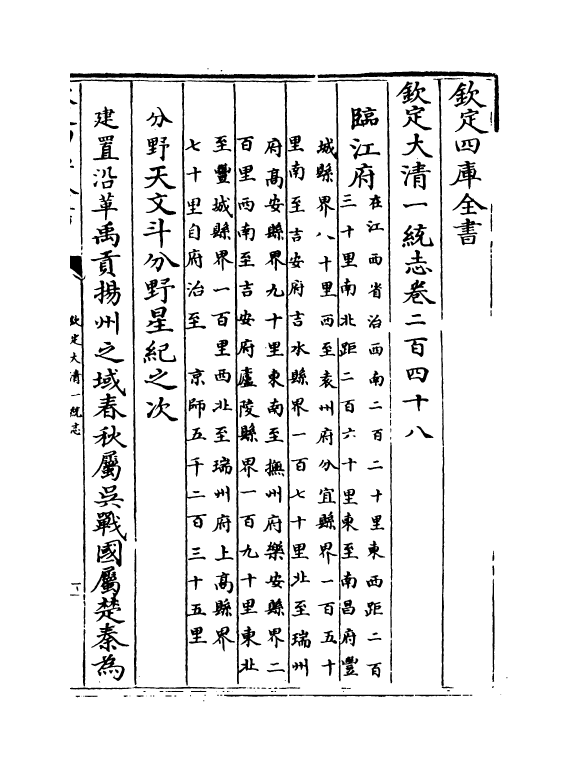 欽定四庫全書
欽定大清一統志卷二百四十八
臨江府在江西省治西南二百二十里東西距二百
三十里南北距二百六十里東至南昌府豐
城縣界八十里西至袁州府分宜縣界一百五十
里南至吉安府吉水縣界一百七十里北至瑞州
府髙安縣界九十里東南至撫州府樂安縣界二
百里西南至吉安府廬陵縣界一百九十里東北
至豐城縣界一百里西北至瑞州府上髙縣界
七十里自府治至 京師五千二百三十五里
分野天文斗分野星紀之次
建置沿革禹貢揚州之域春秋屬吳戰國屬楚秦為
欽定大清一統志